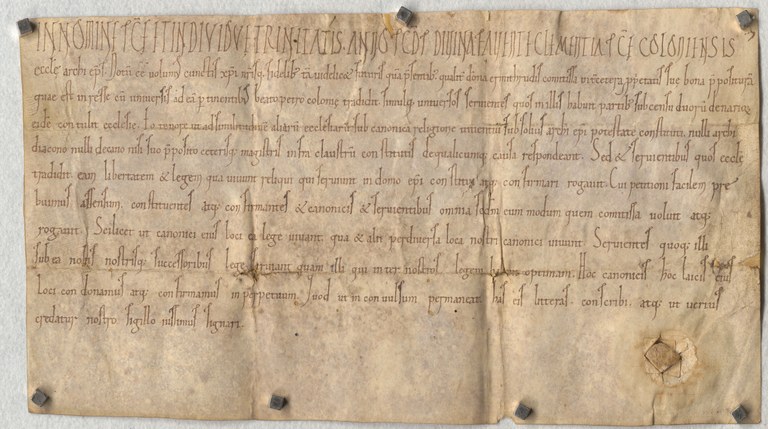 IN NOMINE SCE ET INDIVIDVE TRINITATIS. ANNO SCDS DIVINA FAVENTE CLEMENTIA SCE COLONIENSIS
eccle archi eps. Notu ee volumus cunctis xpi nrisq; fidelib; ta videlic& futuris qua psentib; qualit dona ermenthrudis comitissa bona p positura
quae est in resse cu universis ad ea p tinentib; beato petro colonie tradidit simulq; universos servientes quos in illis habuit partib; sub censu duoru denariorum
eide contulit ecclesie. Eo tenore ut ad similitudine aliaru ecclesiaru sub canonica religione viventiu sub solius archi epi potestate constituti nulli archi
diacono nulli decano nisi suo pposito ceterisq; magistris infra claustru constitutis de qualicumq; causa respondeant. Sed & servientibus quos eccle
tradidit. eam libertatem & legem qua vivunt reliqui qui serviunt in domo epi constitui atq; confirmari rogavit. Cui petitioni facilem pre
buimus assensum. constituentes atq; confirmantes & canonicis & servientibus omnia secdm eum modum quem comitissa voluit atq;
rogavit. Scilicet ut canonici eius loci ea lege vivant. qua & alii per diversa loca nostri canonici vivunt. Servientes quoq; illi
sub ea nobis nostrisq; successoribus lege serviant quam illi qui inter nostros legem habent optimam. Hoc canonicis hoc laicis eius
loci condonamus atq; confirmamus in perpetuum. Quod ut inconvulsum permaneat his eis litteras conscribi. atq; ut verius
credatur nostro sigillo iussimus signari.